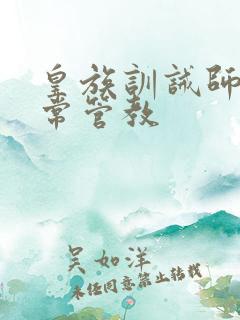 皇族訓誡師
常管教
吴如洋
未经同意禁止转载